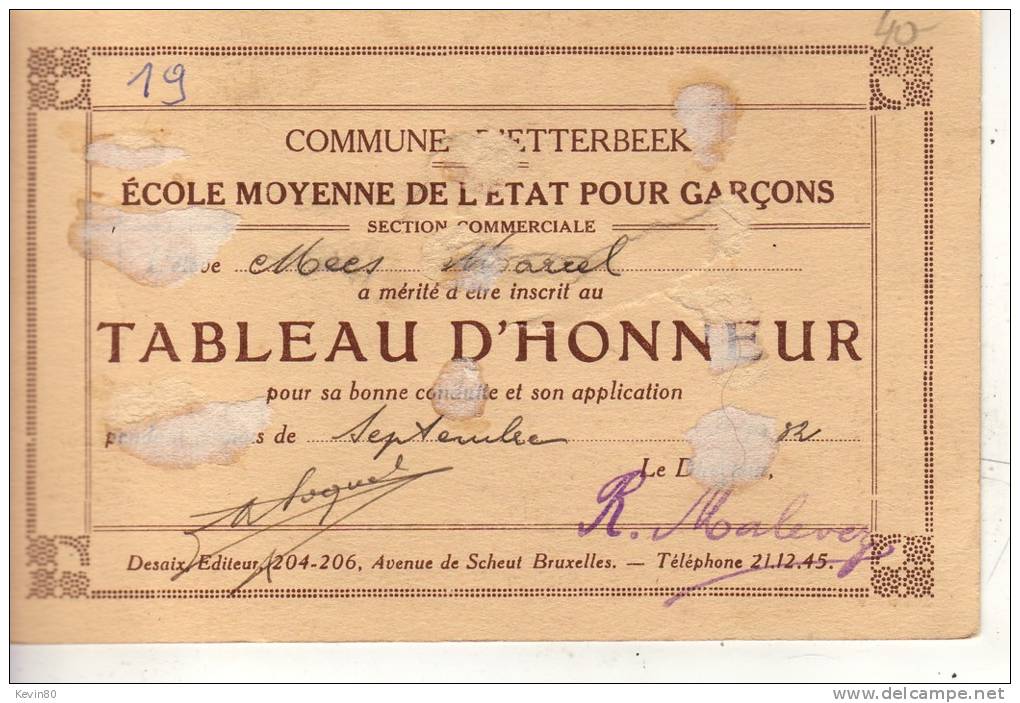 40-
19
COMMUNE D'ETTERBEEK
ÉCOLE MOYENNE DE L'ETAT POUR GARÇONS
SECTION COMMERCIALE
Mees Marcel
a mérité d'être inscrit au
TABLEAU D'HONNEUR
pour sa bonne conduite et son application
de Septembre 32
Le Directeur,
R. Malevez
Desaix, Editeur, 204-206, Avenue de Scheut Bruxelles. — Téléphone 21.12.45.
Kevin80
delcampe.net